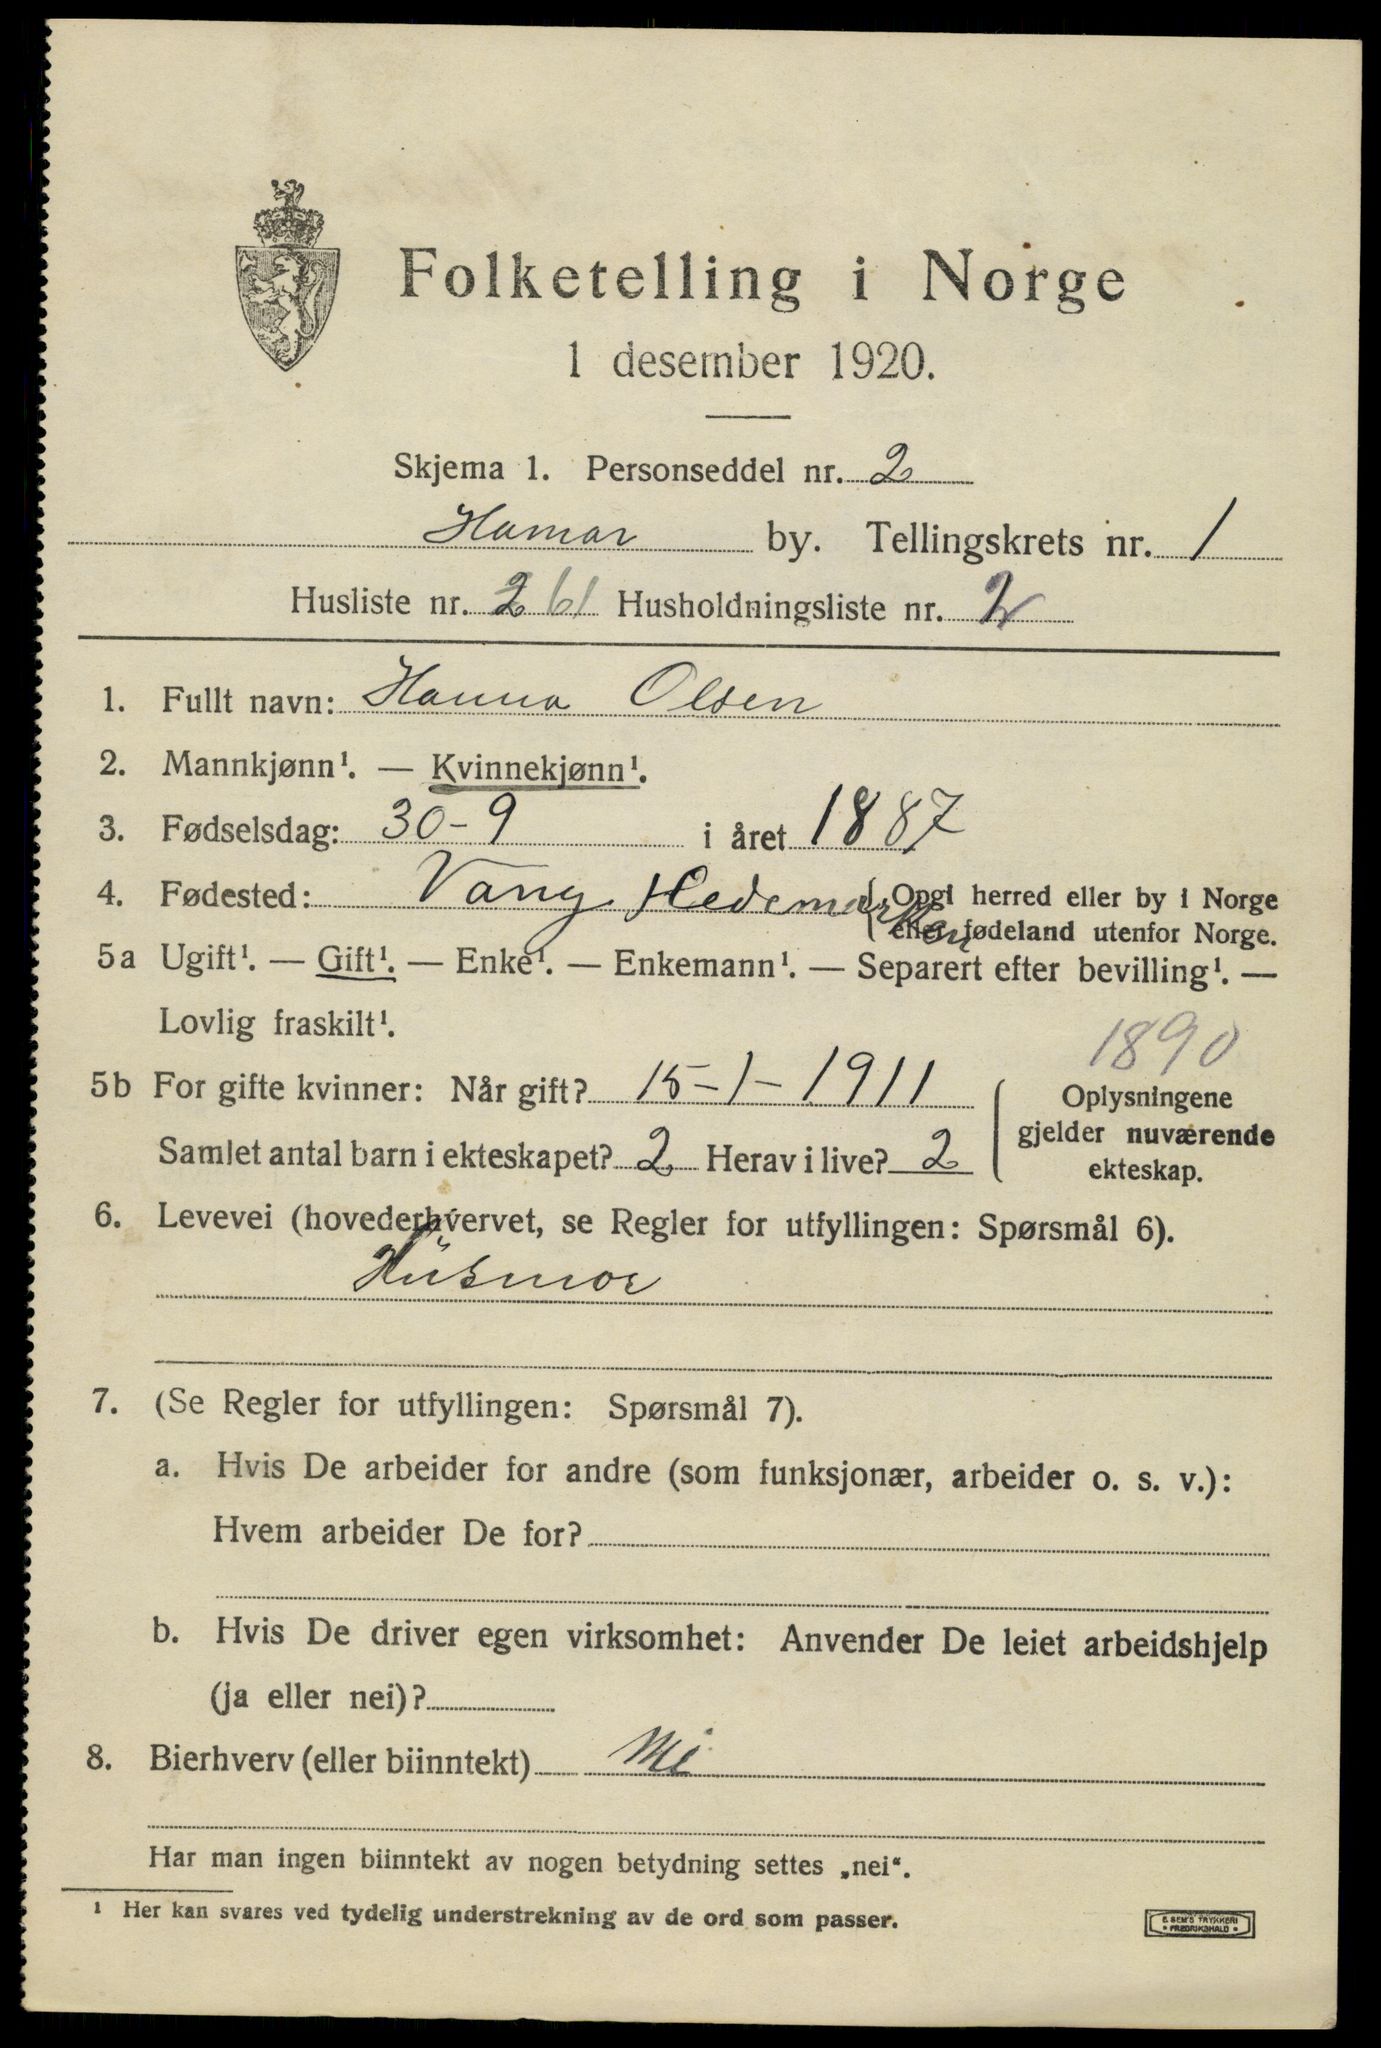 Folketelling i Norge
1 desember 1920.
Skjema 1. Personseddel nr. 2
Hamar by. Tellingskrets nr. 1
Husliste nr. 261 Husholdningsliste nr. 2
1. Fullt navn: Hanna Olsen
2. Mannkjønn¹. — Kvinnekjønn¹.
3. Fødselsdag: 30-9 i året 1887
4. Fødested: Vang Hedemarken { Opgi herred eller by i Norge
eller fødeland utenfor Norge.
5a Ugift¹. — Gift¹. — Enke¹. — Enkemann¹. — Separert efter bevilling¹. —
Lovlig fraskilt¹.
1890
5b For gifte kvinner: Når gift? 15-1-1911
Samlet antal barn i ekteskapet? 2 Herav i live? 2
Oplysningene
gjelder nuværende
ekteskap.
6. Levevei (hovederhvervet, se Regler for utfyllingen: Spørsmål 6).
Husmor
7. (Se Regler for utfyllingen: Spørsmål 7).
a. Hvis De arbeider for andre (som funksjonær, arbeider o. s. v.):
Hvem arbeider De for?
b. Hvis De driver egen virksomhet: Anvender De leiet arbeidshjelp
(ja eller nei)?
8. Bierhverv (eller biinntekt)
Har man ingen biinntekt av nogen betydning settes „nei".
¹ Her kan svares ved tydelig understrekning av de ord som passer.
E. SEM'S TRYKKERI
• FREDRIKSHALD •